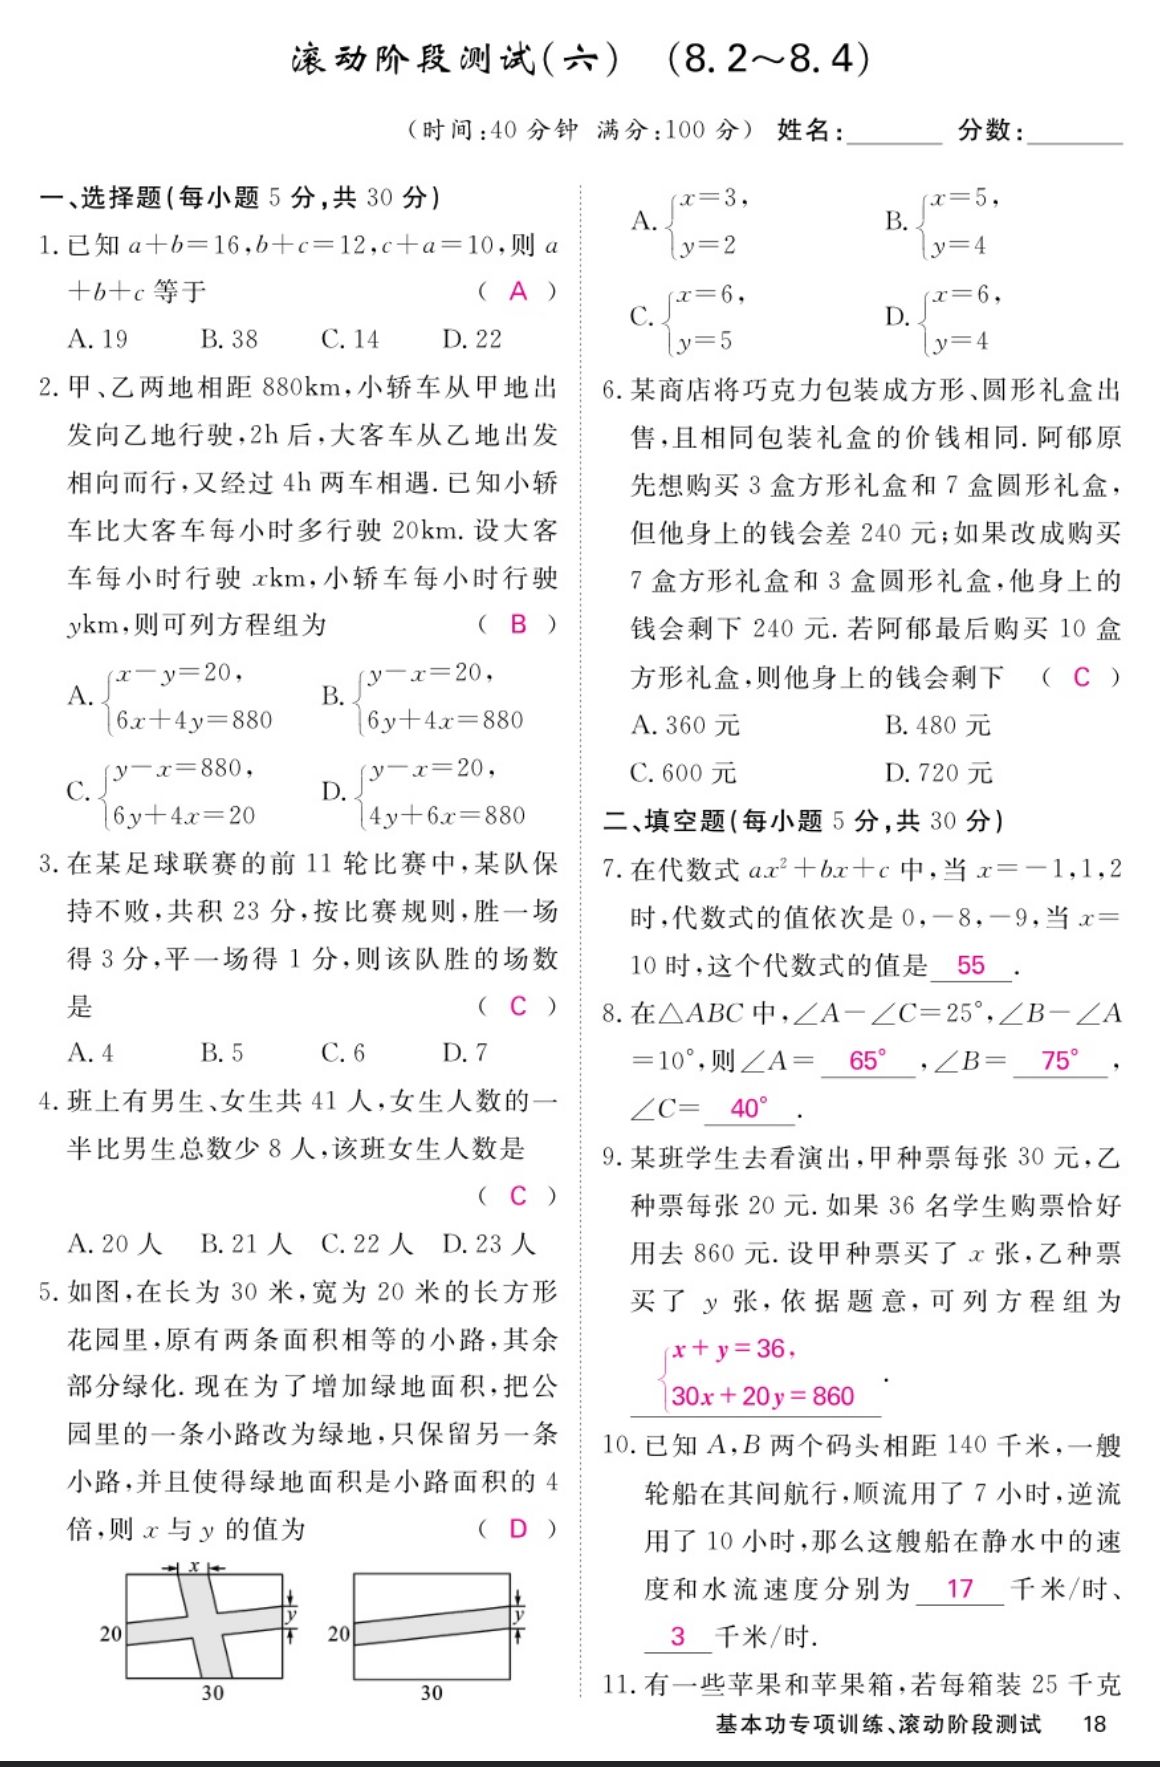 滚动阶段测试(六) (8.2～8.4)
(时间:40 分钟 满分:100 分) 姓名:______ 分数:______
一、选择题(每小题 5 分,共 30 分)
1. 已知 a+b=16,b+c=12,c+a=10,则 a
+b+c 等于 ( A )
A. 19 B. 38 C. 14 D. 22
2. 甲、乙两地相距 880km,小轿车从甲地出
发向乙地行驶,2h 后,大客车从乙地出发
相向而行,又经过 4h 两车相遇. 已知小轿
车比大客车每小时多行驶 20km. 设大客
车每小时行驶 xkm,小轿车每小时行驶
ykm,则可列方程组为 ( B )
A. {x-y=20, 6x+4y=880 B. {y-x=20, 6y+4x=880
C. {y-x=880, 6y+4x=20 D. {y-x=20, 4y+6x=880
3. 在某足球联赛的前 11 轮比赛中,某队保
持不败,共积 23 分,按比赛规则,胜一场
得 3 分,平一场得 1 分,则该队胜的场数
是 ( C )
A. 4 B. 5 C. 6 D. 7
4. 班上有男生、女生共 41 人,女生人数的一
半比男生总数少 8 人,该班女生人数是
( C )
A. 20 人 B. 21 人 C. 22 人 D. 23 人
5. 如图,在长为 30 米,宽为 20 米的长方形
花园里,原有两条面积相等的小路,其余
部分绿化. 现在为了增加绿地面积,把公
园里的一条小路改为绿地,只保留另一条
小路,并且使得绿地面积是小路面积的 4
倍,则 x 与 y 的值为 ( D )
x
y y
20 20
30 30
A. {x=3, y=2 B. {x=5, y=4
C. {x=6, y=5 D. {x=6, y=4
6. 某商店将巧克力包装成方形、圆形礼盒出
售,且相同包装礼盒的价钱相同. 阿郁原
先想购买 3 盒方形礼盒和 7 盒圆形礼盒,
但他身上的钱会差 240 元;如果改成购买
7 盒方形礼盒和 3 盒圆形礼盒,他身上的
钱会剩下 240 元. 若阿郁最后购买 10 盒
方形礼盒,则他身上的钱会剩下 ( C )
A. 360 元 B. 480 元
C. 600 元 D. 720 元
二、填空题(每小题 5 分,共 30 分)
7. 在代数式 ax²+bx+c 中,当 x=-1,1,2
时,代数式的值依次是 0,-8,-9,当 x=
10 时,这个代数式的值是 55 .
8. 在△ABC 中,∠A-∠C=25°,∠B-∠A
=10°,则∠A= 65° ,∠B= 75° ,
∠C= 40° .
9. 某班学生去看演出,甲种票每张 30 元,乙
种票每张 20 元. 如果 36 名学生购票恰好
用去 860 元. 设甲种票买了 x 张,乙种票
买了 y 张,依据题意,可列方程组为
{x+y=36, 30x+20y=860 .
10. 已知 A,B 两个码头相距 140 千米,一艘
轮船在其间航行,顺流用了 7 小时,逆流
用了 10 小时,那么这艘船在静水中的速
度和水流速度分别为 17 千米/时、
3 千米/时.
11. 有一些苹果和苹果箱,若每箱装 25 千克
基本功专项训练、滚动阶段测试 18